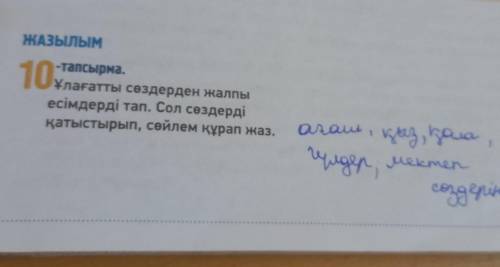 ЖАЗЫЛЫМ
10-тапсырма.
Ұлағатты сөздерден жалпы
есімдерді тап. Сол сөздерді
қатыстырып, сөйлем құрап жаз.
ағаш, қыз, қала,
гүлдер, мектеп
сөздерін